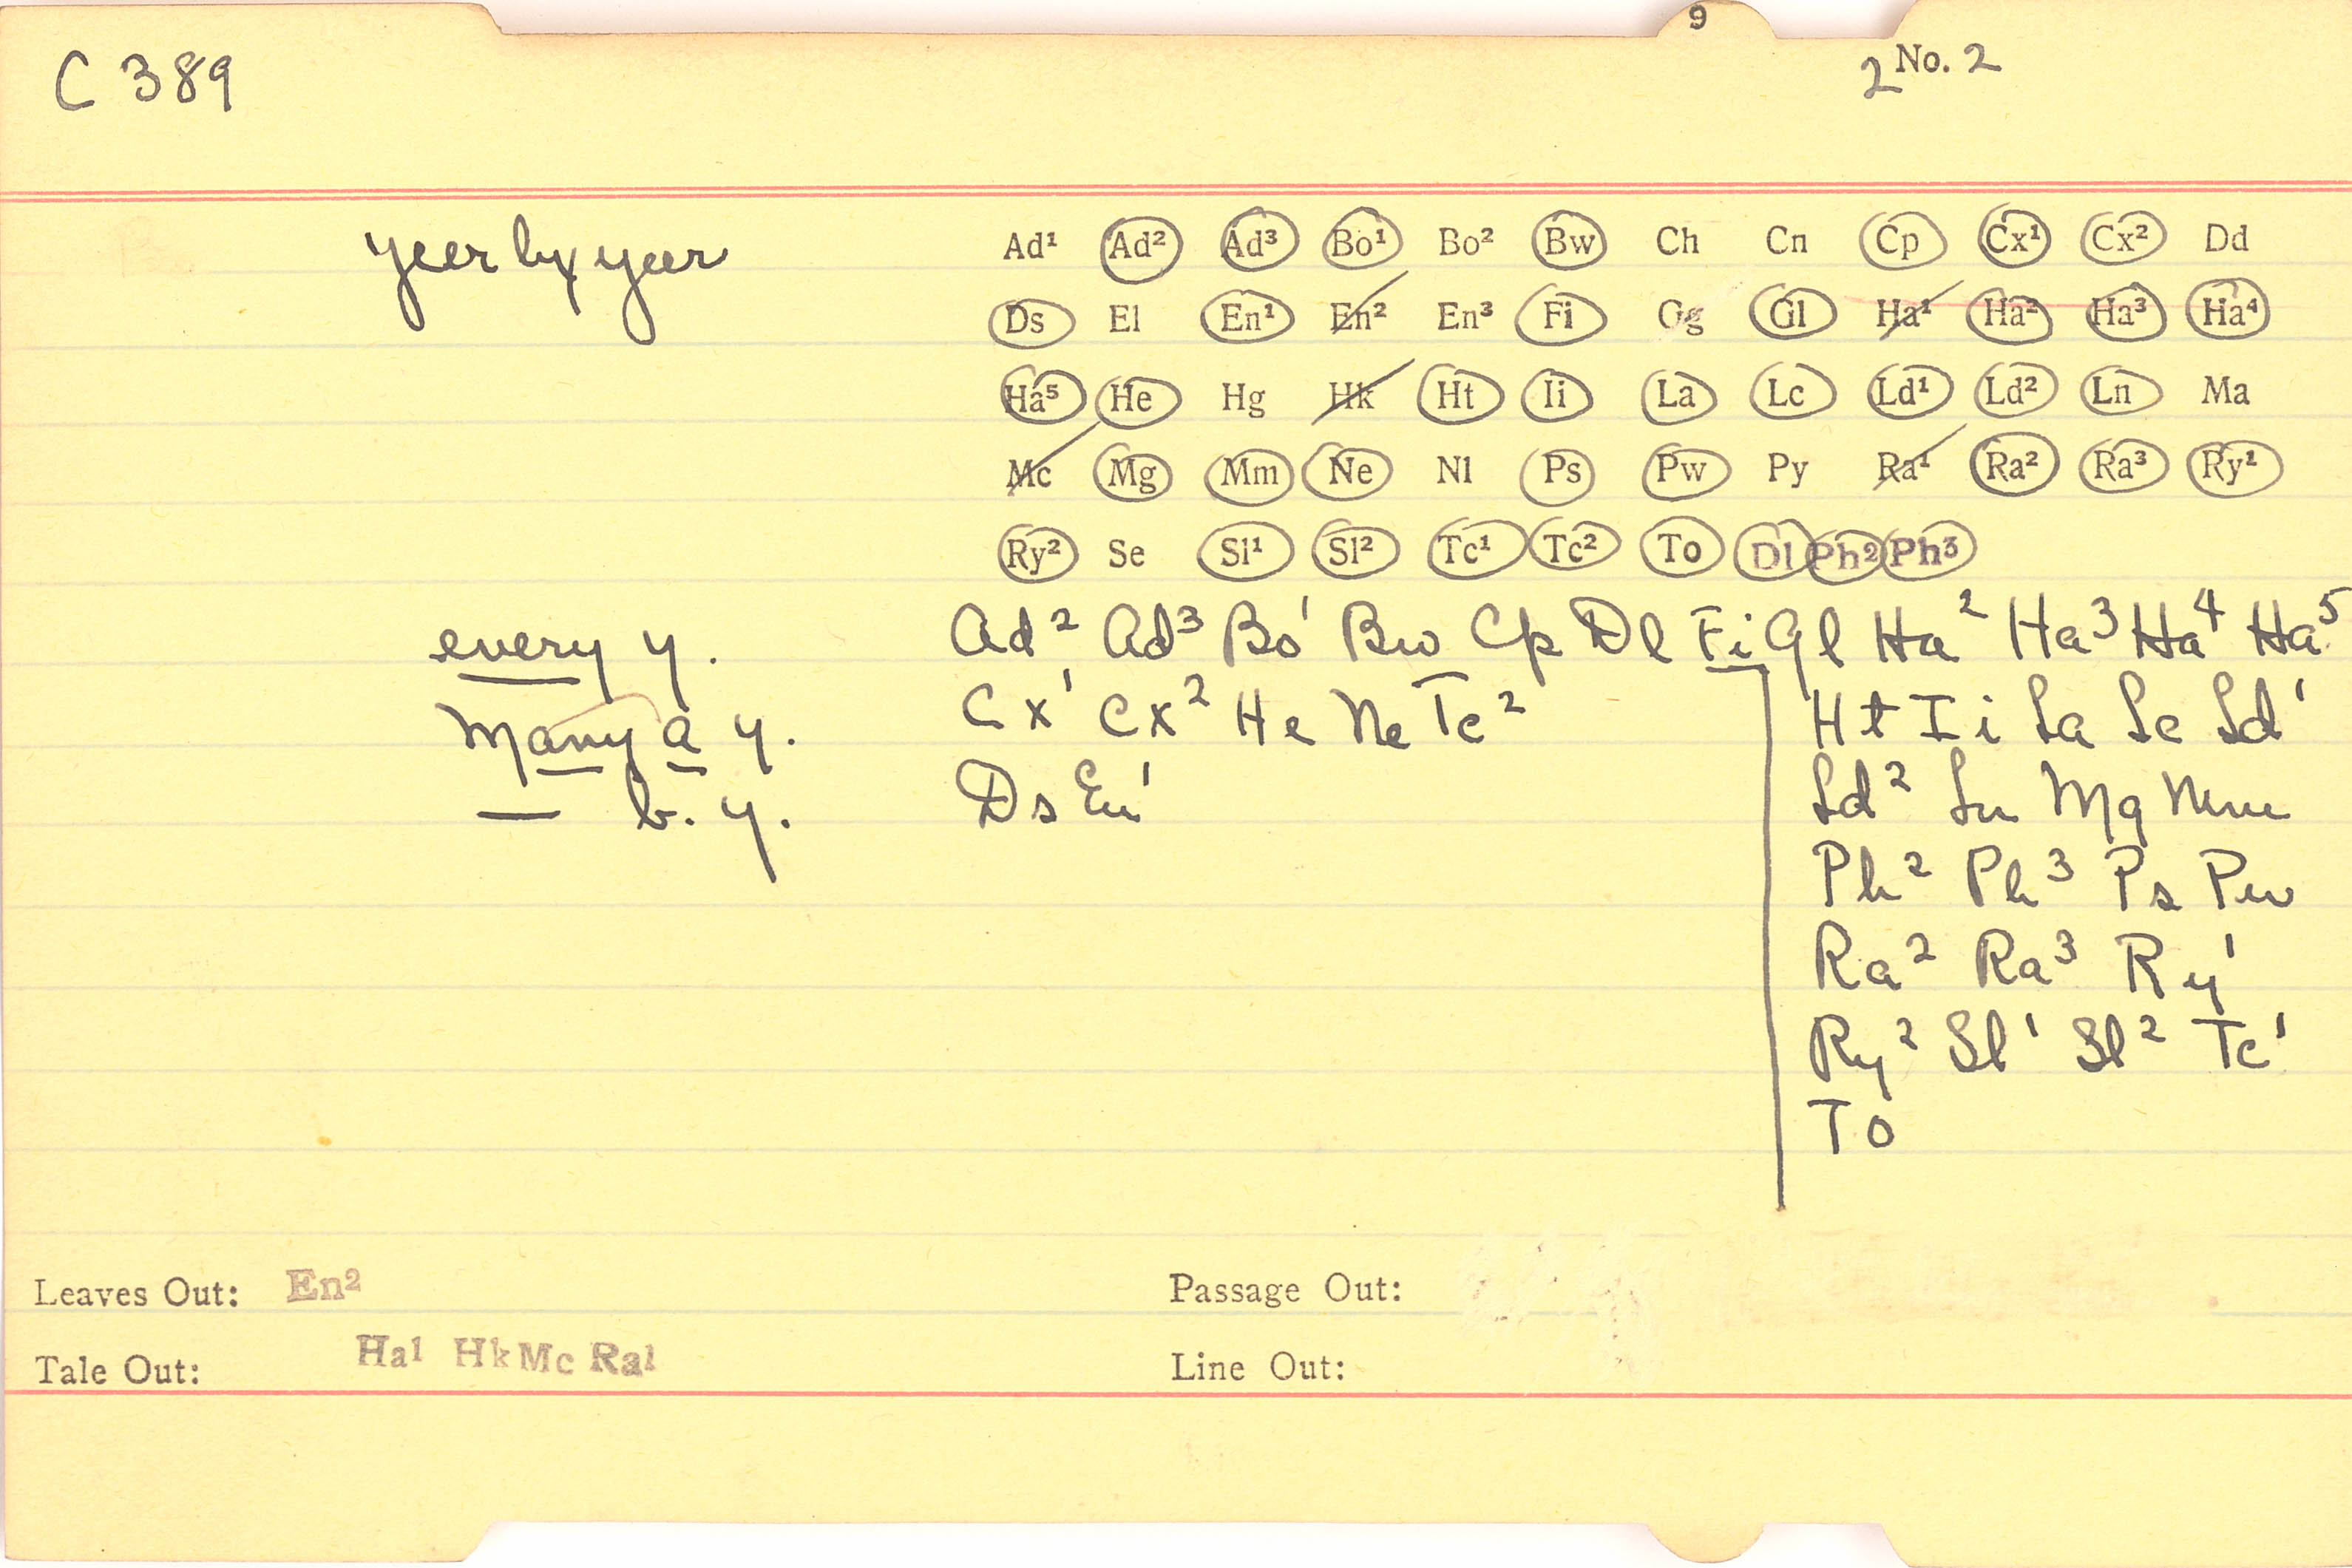 9
C 389
2 No. 2
yeer by yeer
Ad¹ Ad² Ad³ Bo¹ Bo² Bw Ch Cn Cp Cx¹ Cx² Dd
Ds El En¹ En² En³ Fi Gg Gl Ha¹ Ha² Ha³ Ha⁴
Ha⁵ He Hg Hk Ht Ii La Lc Ld¹ Ld² Ln Ma
Mc Mg Mm Ne Nl Ps Pw Py Ra¹ Ra² Ra³ Ry¹
Ry² Se Sl¹ Sl² Tc¹ Tc² To Dl Ph² Ph³
every y. Ad² Ad³ Bo¹ Bw Cp Dl Fi Gl Ha² Ha³ Ha⁴ Ha⁵
Many a y. Cx¹ Cx² He Ne Tc² Ht Ii La Lc Ld¹
— b. y. Ds En¹ Ld² Ln Mg Mm
Ph² Ph³ Ps Pw
Ra² Ra³ Ry¹
Ry² Sl¹ Sl² Tc¹
To
Leaves Out: En² Passage Out:
Tale Out: Ha¹ Hk Mc Ra¹ Line Out: